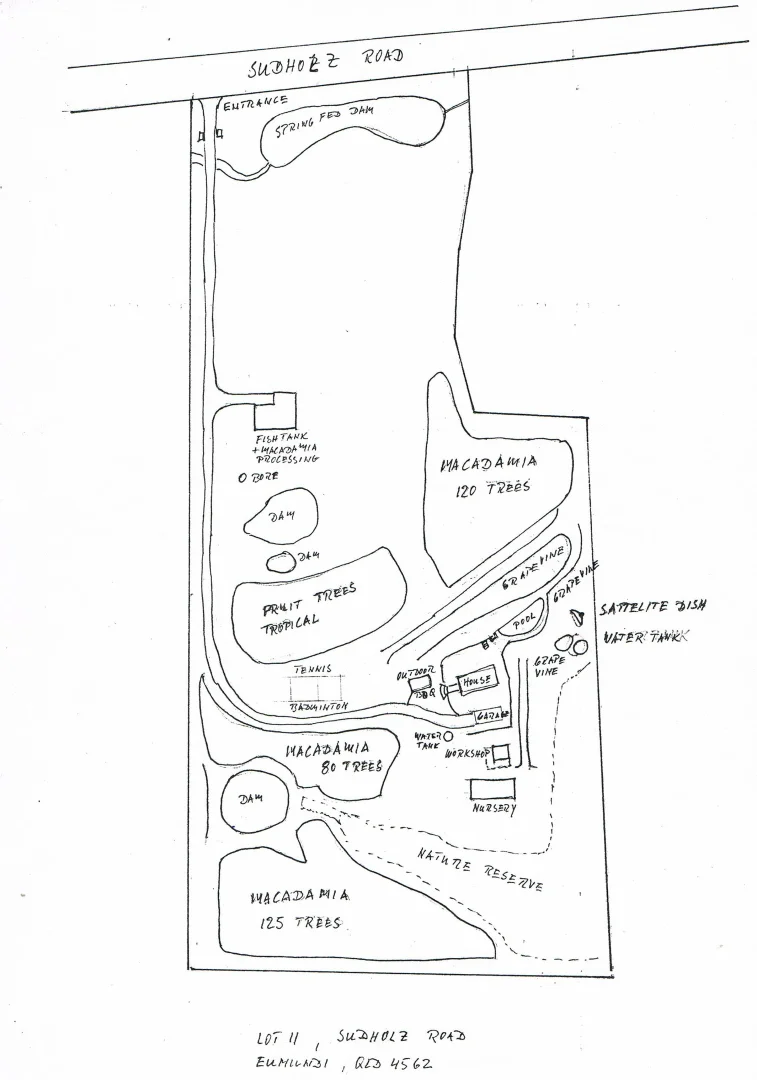 SUDHOLZ ROAD
ENTRANCE
SPRING FED DAM
FISH TANK
+ MACADAMIA
PROCESSING
BORE
DAM
DAM
MACADAMIA
120 TREES
GRAPEVINE
GRAPEVINE
FRUIT TREES
TROPICAL
POOL
SATTELITE DISH
WATER TANK
GRAPE
VINE
TENNIS
BADMINTON
OUTDOOR
BBQ
HOUSE
GARAGE
WATER
TANK
WORKSHOP
MACADAMIA
80 TREES
DAM
NURSERY
NATURE RESERVE
MACADAMIA
125 TREES
LOT 11, SUDHOLZ ROAD
EUMUNDI, QLD 4562